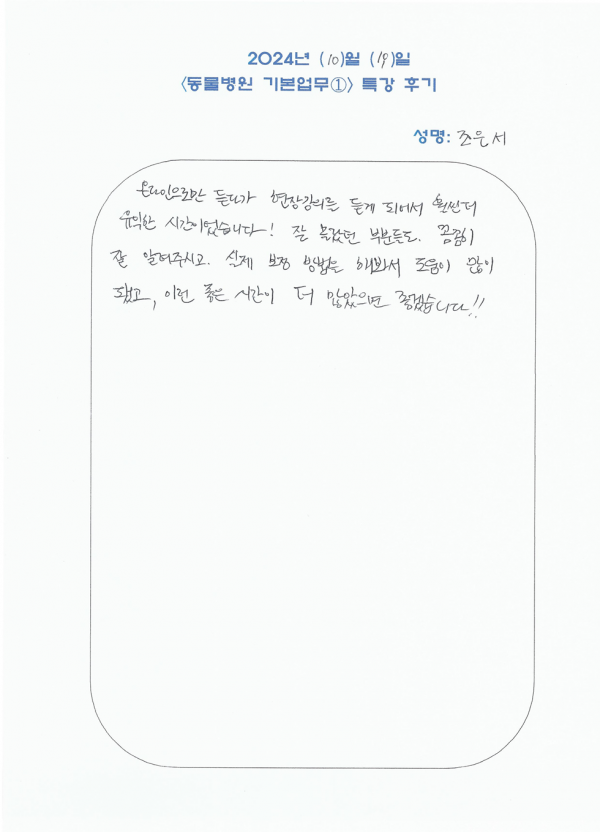 2024년 (10)월 (19)일
<동물병원 기본업무①> 특강 후기
성명: 조은서
온라인으로만 듣다가 현장강의를 듣게 되어서 훨씬더
유익한 시간이었습니다! 잘 몰랐던 부분들도. 꼼꼼히
잘 알려주시고. 실제 보정 방법을 해봐서 도움이 많이
됐고, 이런 좋은 시간이 더 많았으면 좋겠습니다!!